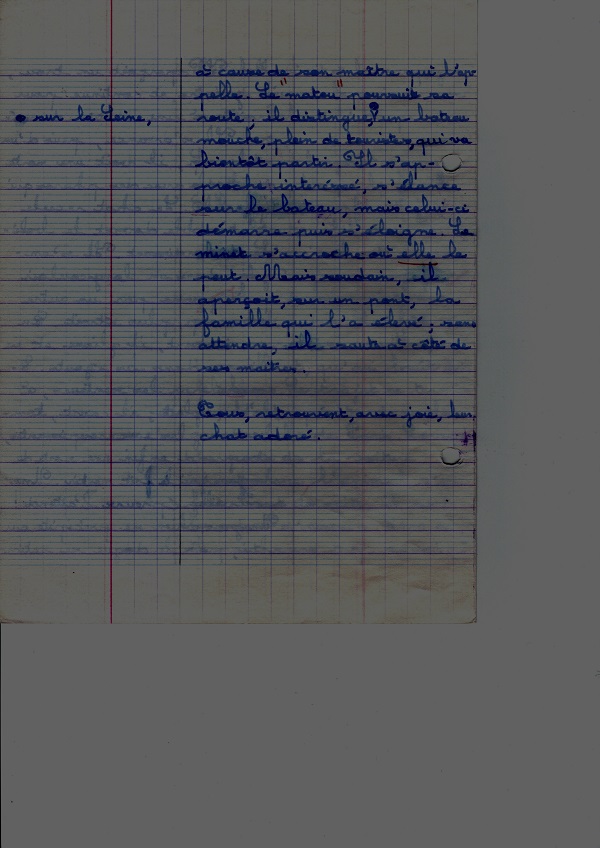 à cause de son maître qui l'ap-
pelle. Le "matou" poursuit sa
route, il distingue, un bateau
sur la Seine,
mouche, plein de touristes, qui va
bientôt partir. Il s'ap-
proche intéressé, s'élance
sur le bateau, mais celui-ci
démarre puis s'éloigne. Le
minet s'accroche où elle le
peut. Mais soudain, il
aperçoit, sur un pont, la
famille qui l'a élevé ; sans
attendre, il saute à côté de
ses maîtres.
Tous, retrouvent, avec joie, leur
chat adoré.